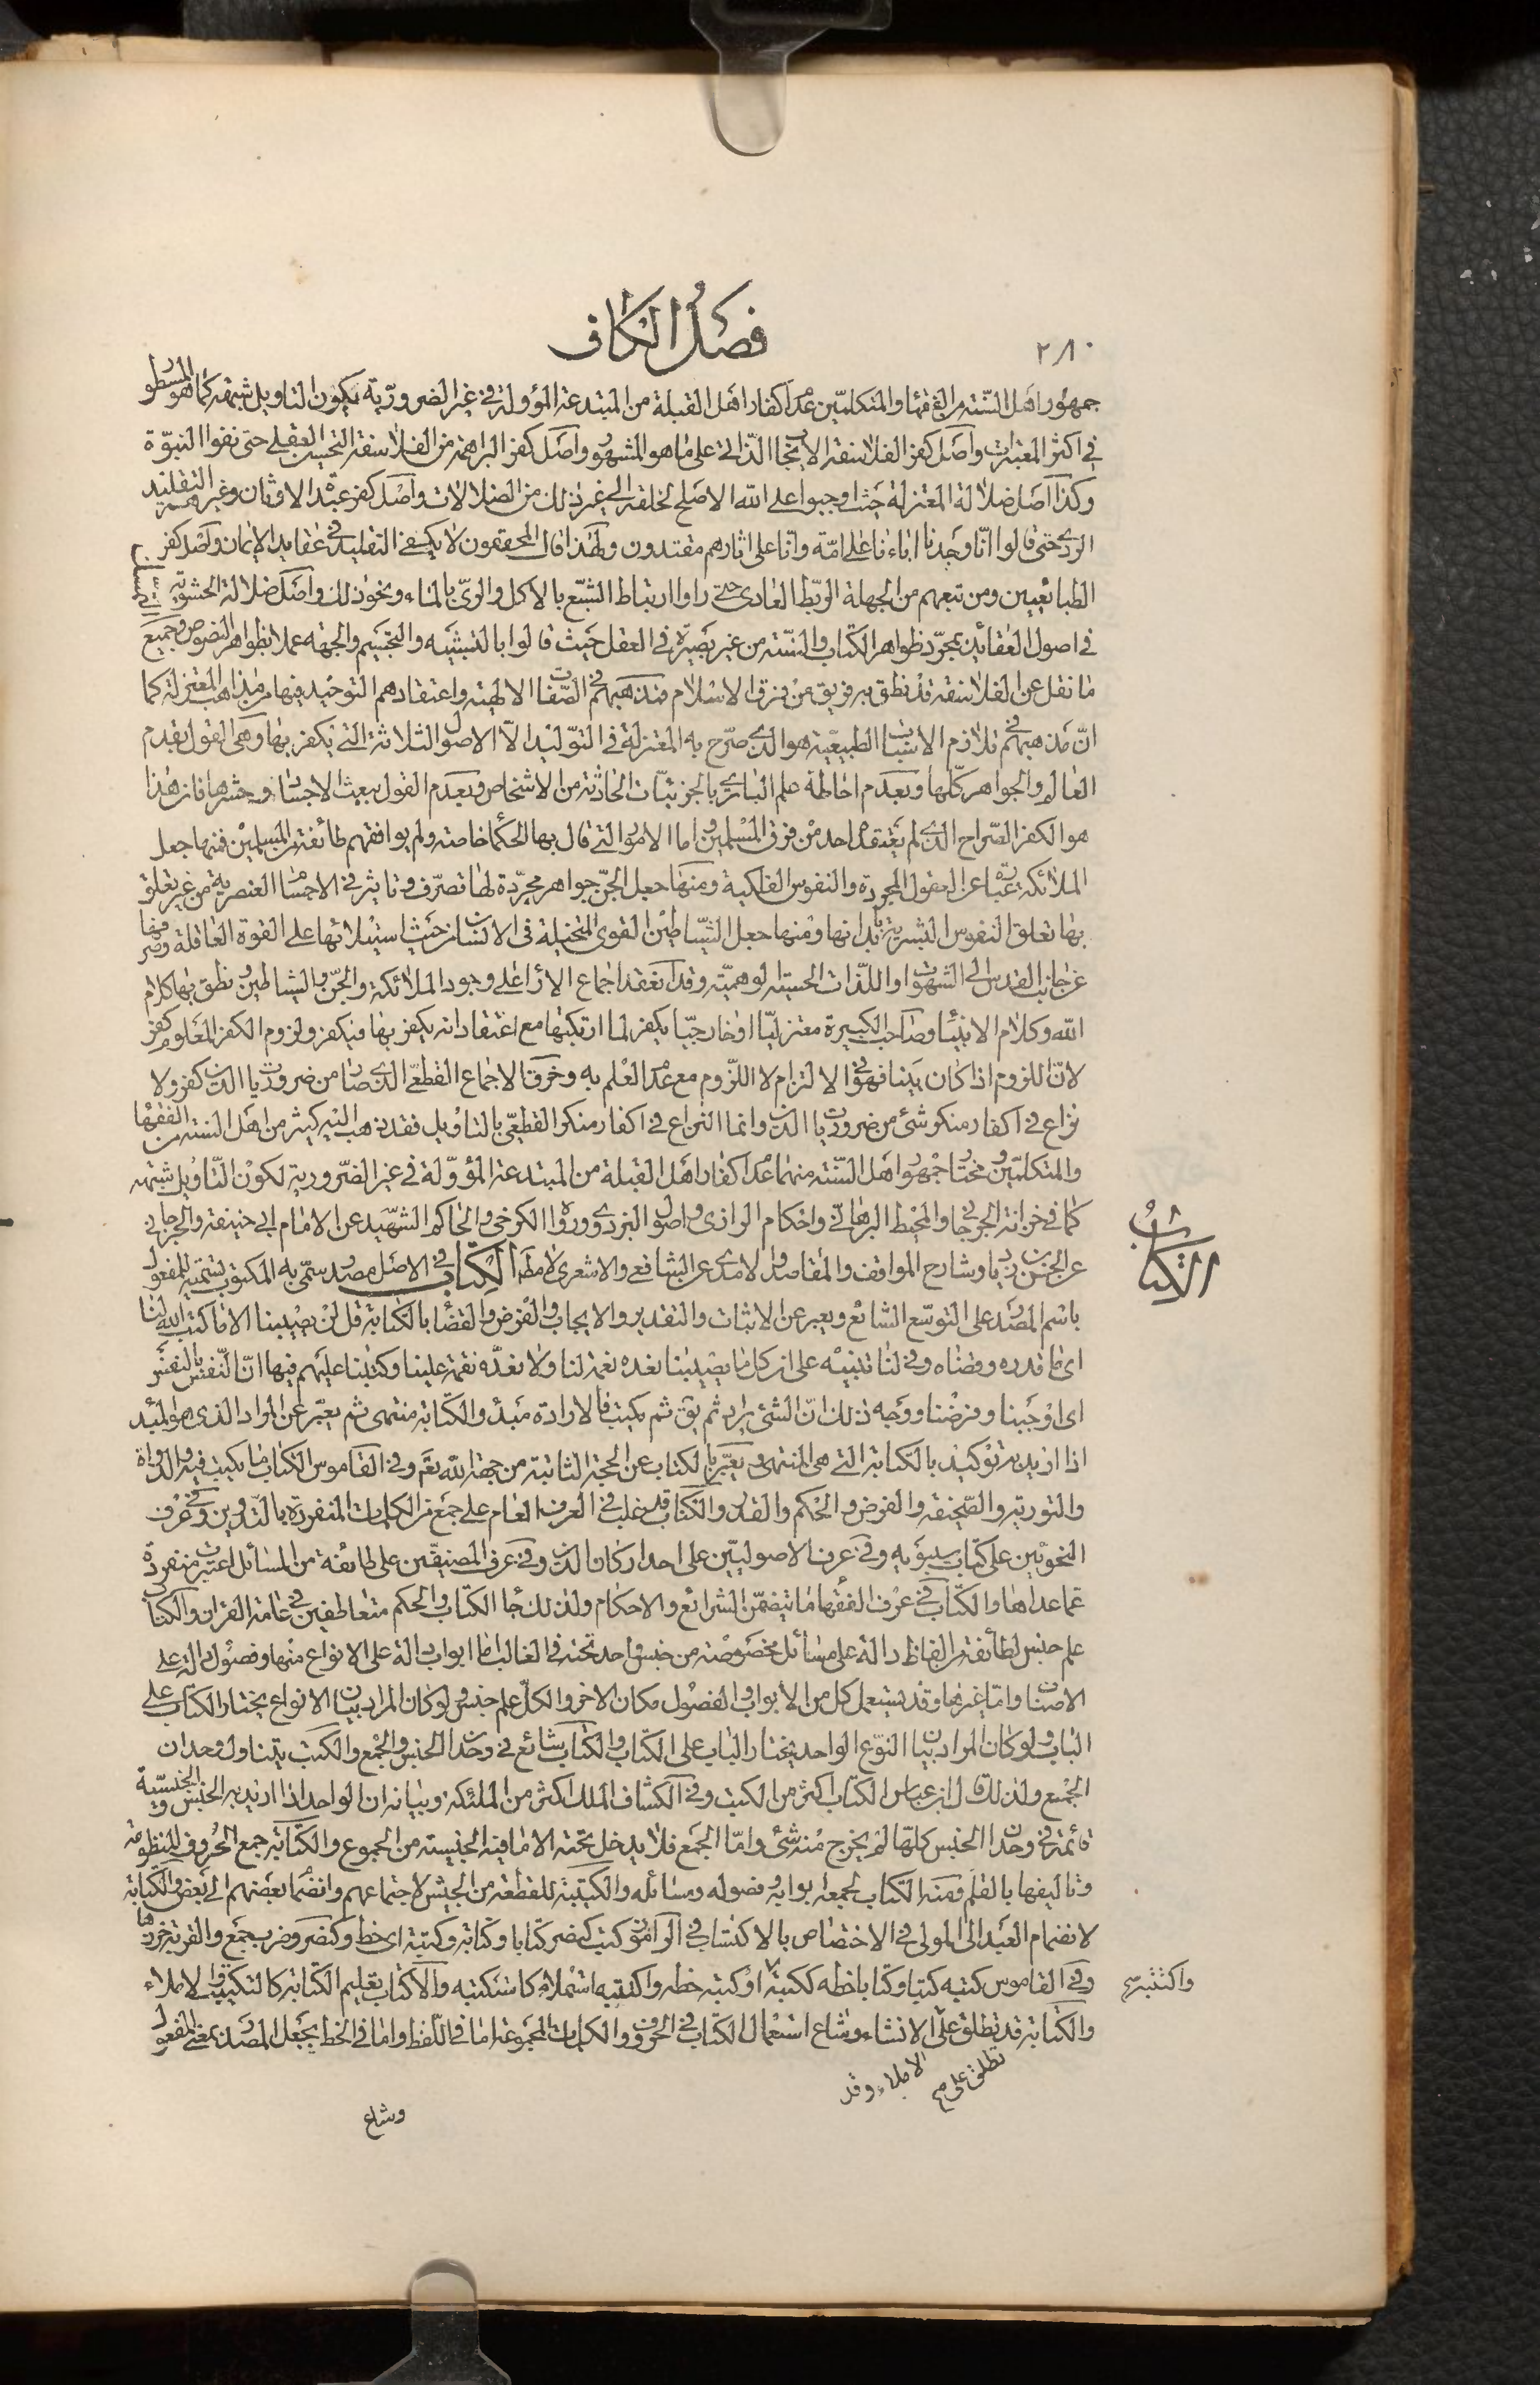 ٢٨٠
فصل الكاف
جمهور اهل السنة من الفقهاء والمتكلمين عدم اكفار اهل القبلة من المبتدعة المؤولة في غير الضرورية يكون التاويل شبهة كما هو المسطور
في اكثر المعتبرات واصل كفر الفلاسفة الايجاب الذاتي على ما هو المشهور واصل كفر البراهمة من الفلاسفة التحسين العقلي حتى نفوا النبوة
وكذا اصل ضلالة المعتزلة حيث اوجبوا على الله الاصلح لخلقه الى غير ذلك من الضلالات واصل كفر عبدة الاوثان وغيرهم التقليد
الردي حتى قالوا انا وجدنا اباءنا على امة وانا على اثارهم مقتدون ولهذا قال المحققون لا يكفي التقليد في عقايد الايمان واصل كفر
الطبائعيين ومن تبعهم من الجهلة الربط العادي حتى راوا ارتباط الشبع بالاكل والري بالماء ونحو ذلك واصل ضلالة الحشوية
في اصول العقائد بمجرد ظواهر الكتاب والسنة من غير بصيرة في العقل حيث قالوا بالتشبيه والتجسيم والجهة عملا بظواهر النصوص وجميع
ما نقل عن الفلاسفة قد نطق به فريق من فرق الاسلام فمذهبهم في الصفات الالهية واعتقادهم التوحيد فيها من مذاهب المعتزلة كما
ان مذهبهم في تلازم الاسباب الطبيعية هو الذي صرح به المعتزلة في التوليد الا الاصول الثلاثة التي يكفر بها وهي القول بقدم
العالم والجواهر كلها وبعدم احاطة علم الباري بالجزئيات الحادثة من الاشخاص وبعدم القول ببعث الاجساد وحشرها فان هذا
هو الكفر الصراح الذي لم يعتقده احد من فرق المسلمين واما الامور التي قال بها الحكماء خاصة ولم يوافقهم طائفة من المسلمين فمنها جعل
الملائكة عبارة عن العقول المجردة والنفوس الفلكية ومنها جعل الجن جواهر مجردة لها تصرف وتاثير في الاجسام العنصرية من غير تعلق
بها تعلق النفوس البشرية بابدانها ومنها جعل الشياطين القوى المتخيلة في الانسان من حيث استيلائها على القوة العاقلة وصرفها
عن جانب القدس الى الشهوات واللذات الحسية الوهمية وقد انعقد اجماع الاراء على وجود الملائكة والجن والشياطين ونطق بها كلام
الله وكلام الانبياء وصاحب الكبيرة معتزليا او خارجيا يكفر لما ارتكبها مع اعتقاد انه يكفر بها فيكفر ولزوم الكفر المعلوم كفر
لان اللزوم اذا كان بينا فهو في الالتزام لا اللزوم مع عدم العلم به وخرق الاجماع القطعي الذي صار من ضروريات الدين كفر ولا
نزاع في اكفار منكر شئ من ضروريات الدين وانما النزاع في اكفار منكر القطعي بالتاويل فقد ذهب اليه كثير من اهل السنة من الفقهاء
والمتكلمين ومختار جمهور اهل السنة منهما عدم اكفار اهل القبلة من المبتدعة المؤولة في غير الضرورية لكون التاويل شبهة
كما في خزانة الجرجاني والمحيط البرهاني واحكام الرازي واصول البزدوي ورواه الكرخي والحاكم الشهيد عن الامام ابي حنيفة والجرجاني
عن الحسن بن زياد وشارح المواقف والمقاصد والامدي عن الشافعي والاشعري لا مطلقا الكتاب في الاصل مصدر سمي به المكتوب تسمية للمفعول
باسم المصدر على التوسع الشائع ويعبر عن الاثبات والتقدير والايجاب والفرض والقضاء بالكتابة قل لن يصيبنا الا ما كتب الله لنا
اي ما قدره وقضاه وفي لنا تنبيه على ان كل ما يصيبنا نعده نعمة لنا ولا نعده نقمة علينا وكتبنا عليهم فيها ان النفس بالنفس
اي اوجبنا وفرضنا ووجه ذلك ان الشئ يراد ثم يق ثم يكتب فالارادة مبدأ والكتابة منتهى ثم يعبر عن المراد الذي هو المبدأ
اذا اريد به توكيد بالكتابة التي هي المنتهى ويعبر بالكتاب عن الحجة الثابتة من جهة الله تعم وفي القاموس الكتاب ما يكتب فيه والدواة
والتورية والصحيفة والفرض والحكم والقدر والكتاب قد غلب في العرف العام على جمع من الكلمات المنفردة بالتدوين وفي عرف
النحويين على كتاب سيبويه وفي عرف الاصوليين على احد اركان الدين وفي عرف المصنفين على طائفة من المسائل اعتبرت منفردة
عما عداها والكتاب في عرف الفقهاء ما يتضمن الشرائع والاحكام ولذلك جاء الكتاب والحكم متعاطفين في عامة القران والكتاب
علم جنس لطائفة من الفاظ دالة على مسائل مخصوصة من جنس واحد تحته في الغالب اما ابواب دالة على الانواع منها وفصول دالة على
الاصناف واما غيرها وقد يستعمل كل من الابواب والفصول مكان الاخر والكل علم جنس ولو كان المراد بيان الانواع يختار الكتاب على
الباب ولو كان المراد بيان النوع الواحد يختار الباب على الكتاب والكتاب شائع في وحدان الجنس والجمع والكتب يتناول وحدان
الجمع ولذلك قال ابن عباس الكتاب اكثر من الكتب وفي الكشاف الملك اكثر من الملئكة وبيانه ان الواحد اذا اريد به الجنس والجنسية
قائمة في وحدان الجنس كلها لم يخرج منه شئ واما الجمع فلا يدخل تحته الا ما فيه الجنسية من الجموع والكتابة جمع الحروف المنظومة
وتاليفها بالقلم ومنه الكتاب لجمعه ابوابه وفصوله ومسائله والكتيبة للقطعة من الجيش لاجتماعهم وانضمام بعضهم الى بعض والكتابة
لانضمام العبد الى المولى في الاختصاص بالاكتساب في الراموز كتب كنصر كتابا وكتابة وكتبة اي خط وكنصر وضرب جمع والقربة خرزها
وفي القاموس كتبه كتبا وكتابا خطه ككتبه او كتبه خطه واكتتبه استملاه كاستكتبه والاكتاب تعليم الكتابة كالتكتيب والاملاء
والكتابة قد تطلق على الانشاء وشاع استعمال الكتاب في الحروف والكلمات المجموعة اما في اللفظ واما في الخط بجعل المصدر بمعنى المفعول
الكتاب
واكتتبه
تطلق على
الاملاء وقد
وشاع